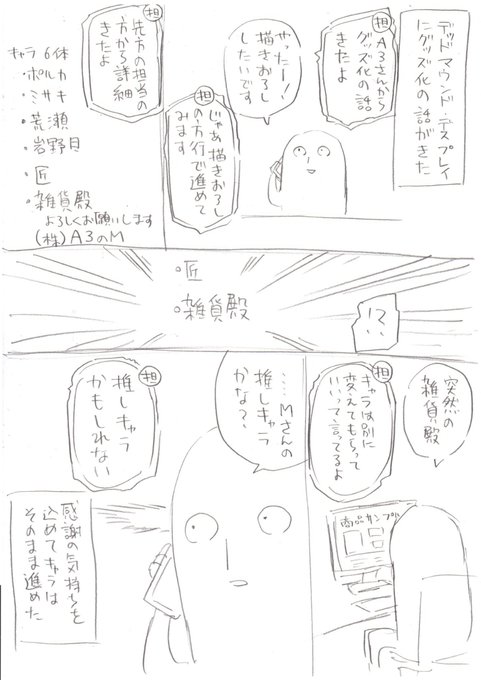 デッドマウント・デスプレイ
にグッズ化の話がきた
担
A3さんから
グッズ化の話
きたよ
やったー!
描きおろし
したいです
担
じゃあ描きおろし
の方行で進めて
みます
担
先方の担当の
方から詳細
きたよ
キャラ6体
・ポルカ
・ミサキ
・荒瀬
・岩野目
・匠
・雑貨殿
よろしくお願いします
(株)A3のM
・匠
・雑貨殿
!?
突然の
雑貨殿
担
キャラは別に
変えてもらって
いいって言ってるよ
商品サンプル
……Mさんの
推しキャラ
かな?
担
推しキャラ
かもしれない
感謝の気持ちを
込めてキャラは
そのまま進めた